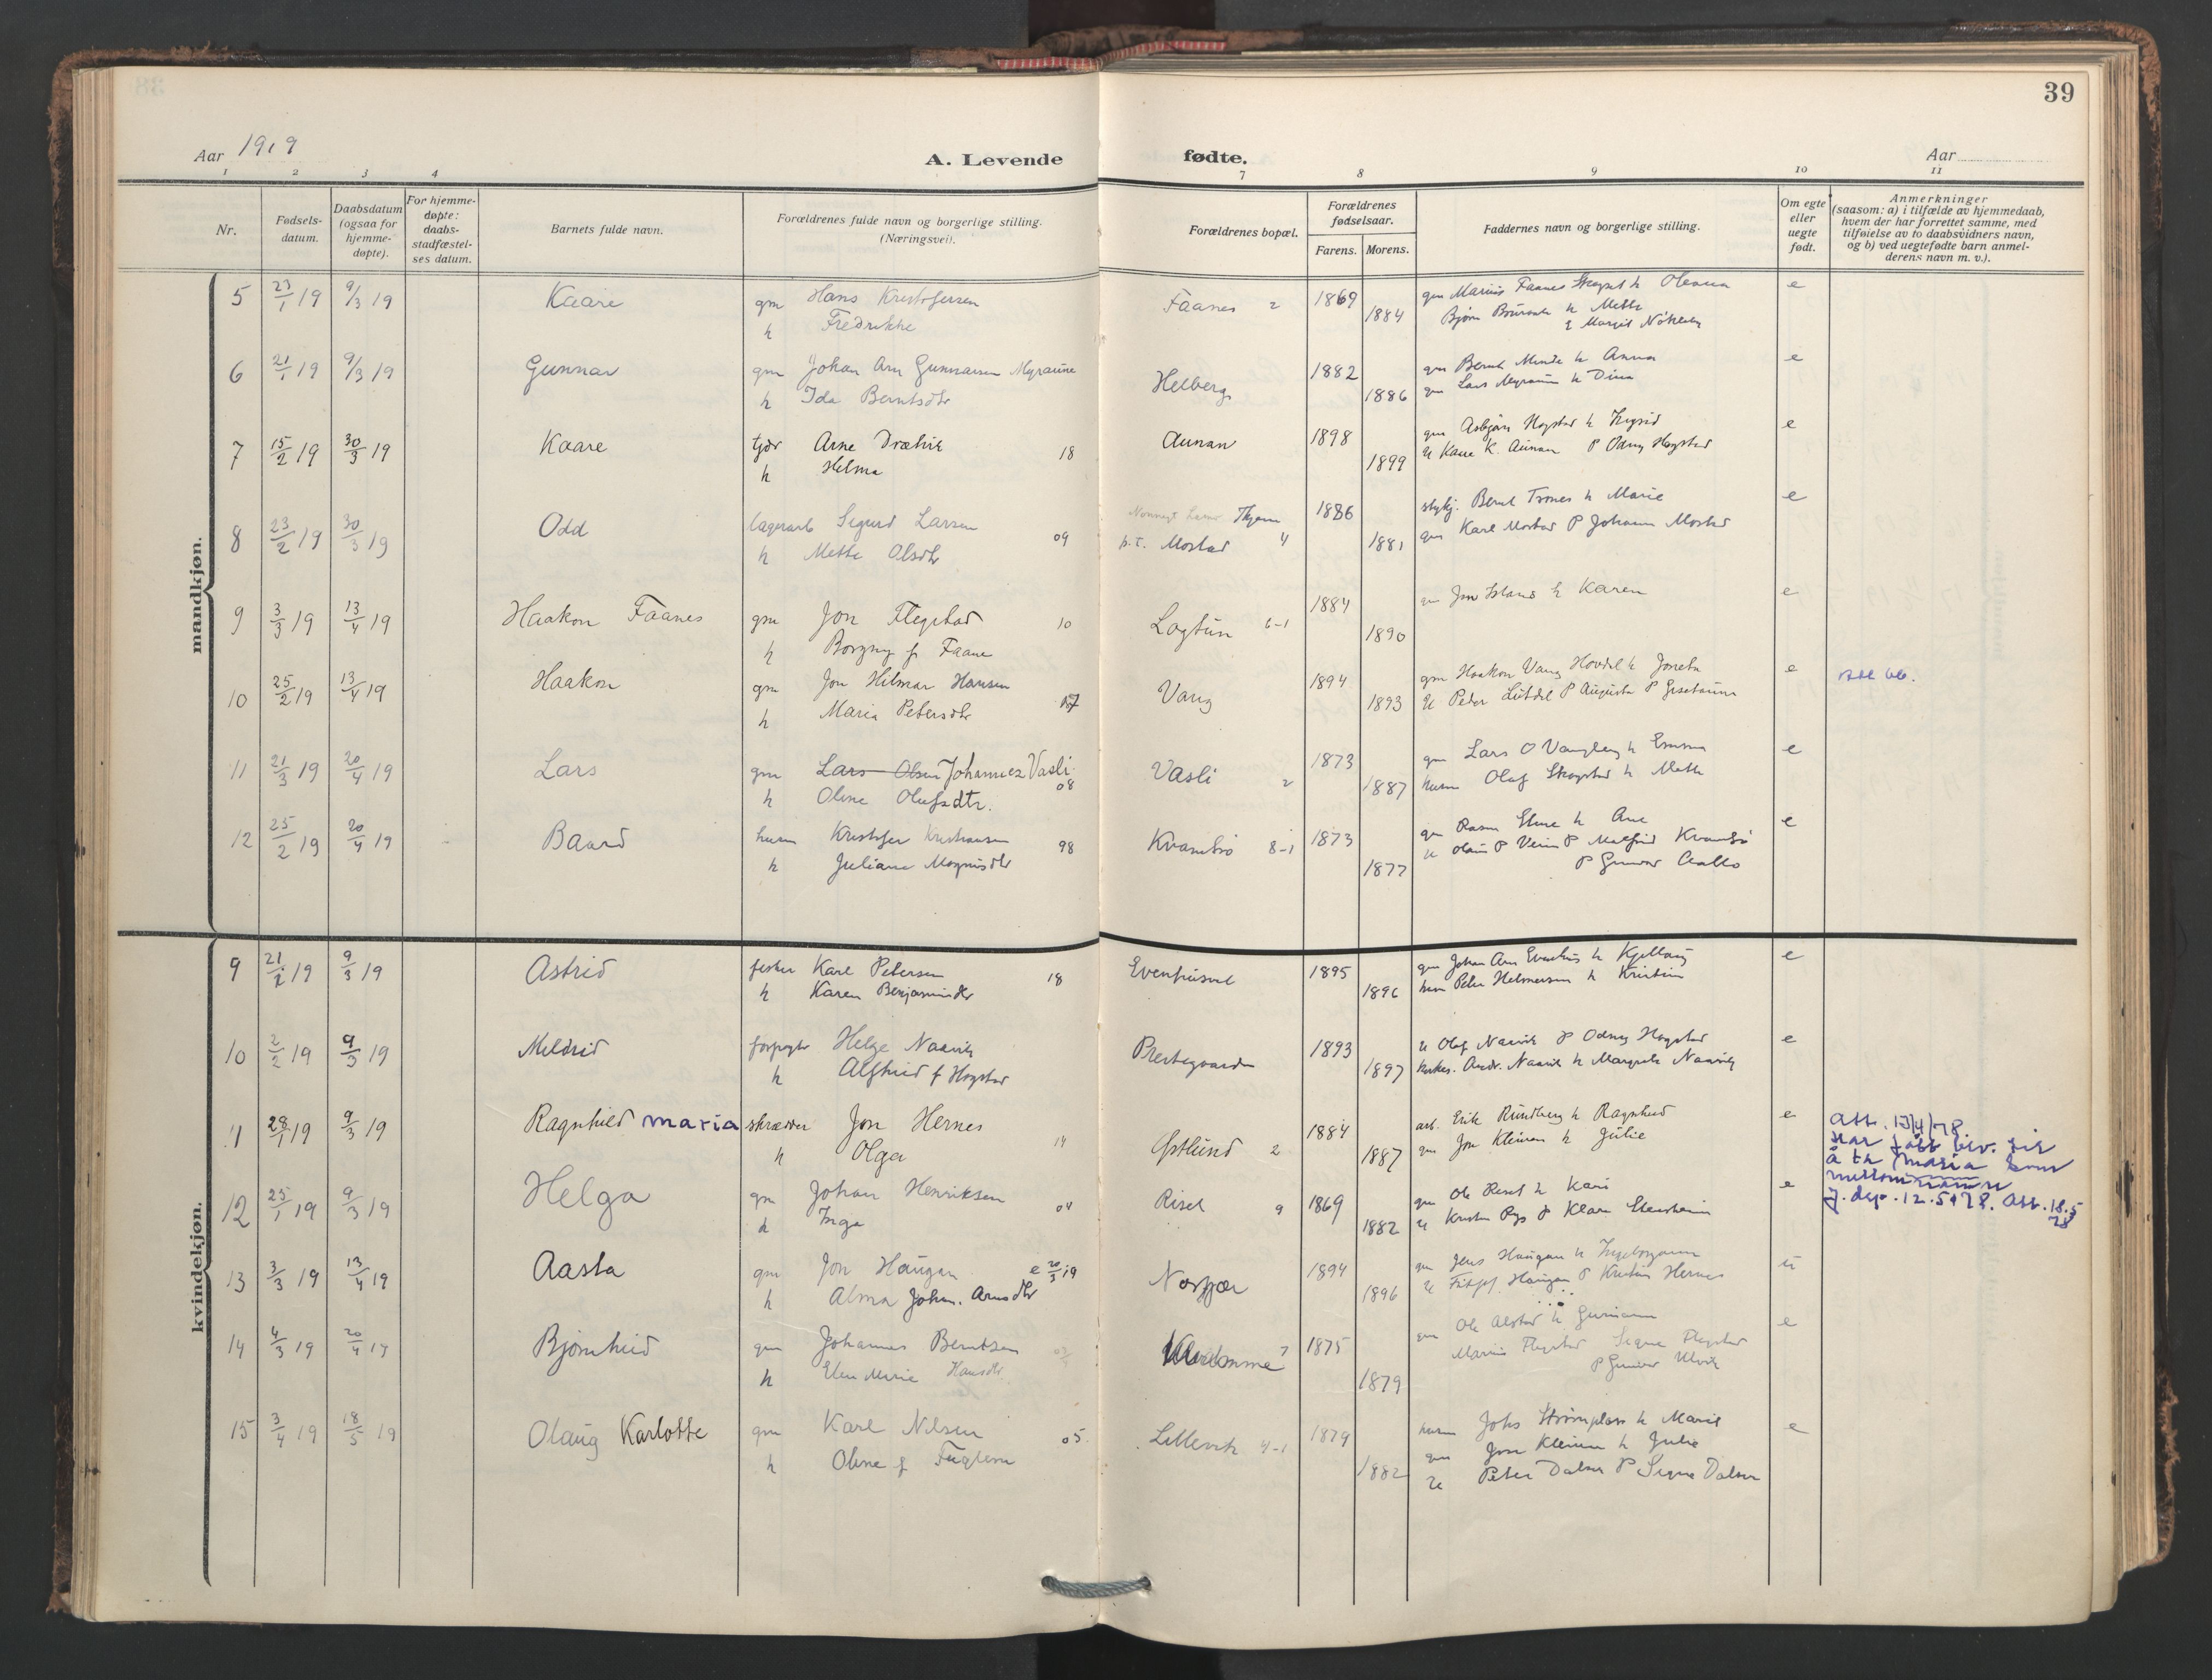 39
Aar 1919
A. Levende fødte.
Aar
1 2 3 4 7 8 9 10 11
Nr.
Fødsels-
datum.
Daabsdatum
(ogsaa for
hjemme-
døpte).
For hjemme-
døpte:
daabs-
stadfæstel-
ses datum.
Barnets fulde navn.
Forældrenes fulde navn og borgerlige stilling.
(Næringsvei).
Forældrenes bopæl.
Forældrenes
fødselsaar.
Farens. Morens.
Faddernes navn og borgerlige stilling.
Om egte
eller
uegte
født.
Anmerkninger
(saasom: a) i tilfælde av hjemmedaab,
hvem der har forrettet samme, med
tilføielse av to daabsvidners navn,
og b) ved uegtefødte barn anmel-
derens navn m. v.).
mandkjøn.
5 23/1 19 9/3 19 Kaare gm Hans Kristofersen Faanes 2 1869 gm Marius Faanes h e
h Fredrikke 1884 Bjørn h Mette
Margit
6 21/1 19 9/3 19 Gunnar gm Johan Arn Gunnarsen Myraune Helberg 1882 gm Bernt h Anna e
h Ida Berntsdtr 1886 gm Lars Myraune h Dina
7 15/2 19 30/3 19 Kaare tjdr Arne 18 Aunan 1898 gm Asbjørn Hogstad h Ingrid e
h Helma 1899 U Kaare K. Aunan P Odny Hogstad
8 23/2 19 30/3 19 Odd lagerarb Sigurd Larsen 09 1886 Bernt Trones h Marie e
h Mette Olsdtr p.t. Mostad 4 1881 gm Karl Mostad P Johanna Mostad
9 3/3 19 13/4 19 Haakon Faanes gm Jon Flegstad 10 Logtun 6-1 1884 gm Jon h Karen e
h Borgny f Faane 1890
10 25/2 19 13/4 19 Haakon gm Jon Hilmar Hansen 17 Vang 1894 gm Haakon Vang h e
h Maria Petersdtr 1893 U Peder P Augusta P
11 21/3 19 20/4 19 Lars gm Lars Olsen Johannes Vasli 08 Vasli 2 1873 gm Lars O h Emma e
h Oline Olufsdtr. 1887 husm Olaf Skogstad h Mette
12 25/2 19 20/4 19 Baard husm Kristofer Kristiansen 98 8-1 1873 gm h Ane e
h Juliane Magnusdtr 1877 U P P
P Gunvor
kvindekjøn.
9 21/2 19 9/3 19 Astrid fisker Karl Petersen 18 1895 gm Johan Arn h Kjellaug e
h Karen Benjaminsdtr 1896 husm Peter Helmersen h Kristine
10 2/2 19 9/3 19 Meldrid forpagter Helge Naavik Prestegaarden 1893 U Olaf Naavik P Odny Hogstad e
h Alfhild f Hogstad 1897 Andr. Naavik h Margrete Naavik
11 28/1 19 9/3 19 Ragnhild Maria skrædder Jon Hernes 14 Østlund 2 1884 arb. Erik Rundberg h Ragnhild e Att. 13/4/78
h Olga 1887 gm Jon Kleiven h Julie Har fått bev. til
å ta Maria som
mellomnavn
J.dep. 12.5.78. Att. 18.5
78
12 25/1 19 9/3 19 Helga gm Johan Henriksen 04 Risel 9 1869 gm Ole Risel h Kari e
h Inga 1882 U P Klara
13 3/3 19 13/4 19 Aasta gm Jon Haugan e 20/3 19 1894 gm Jens Haugan h Ingeborganna u
h Alma Johan. Arnsdtr 1896 U Haugan P Kristine Hernes
14 4/3 19 20/4 19 Bjørnhild gm Johannes Berntsen 7 1875 gm Ole h e
h Elen Marie Hansdtr 1879 Marius Flegstad Signe Flegstad
P Gunvor
15 3/4 19 18/5 19 Olaug Karlotte gm Karl Nilsen 05 Lillevik 4-1 1879 husm Johs h Marit e
h Oline f 1882 gm Jon Kleiven h Julie
U Peter P Signe